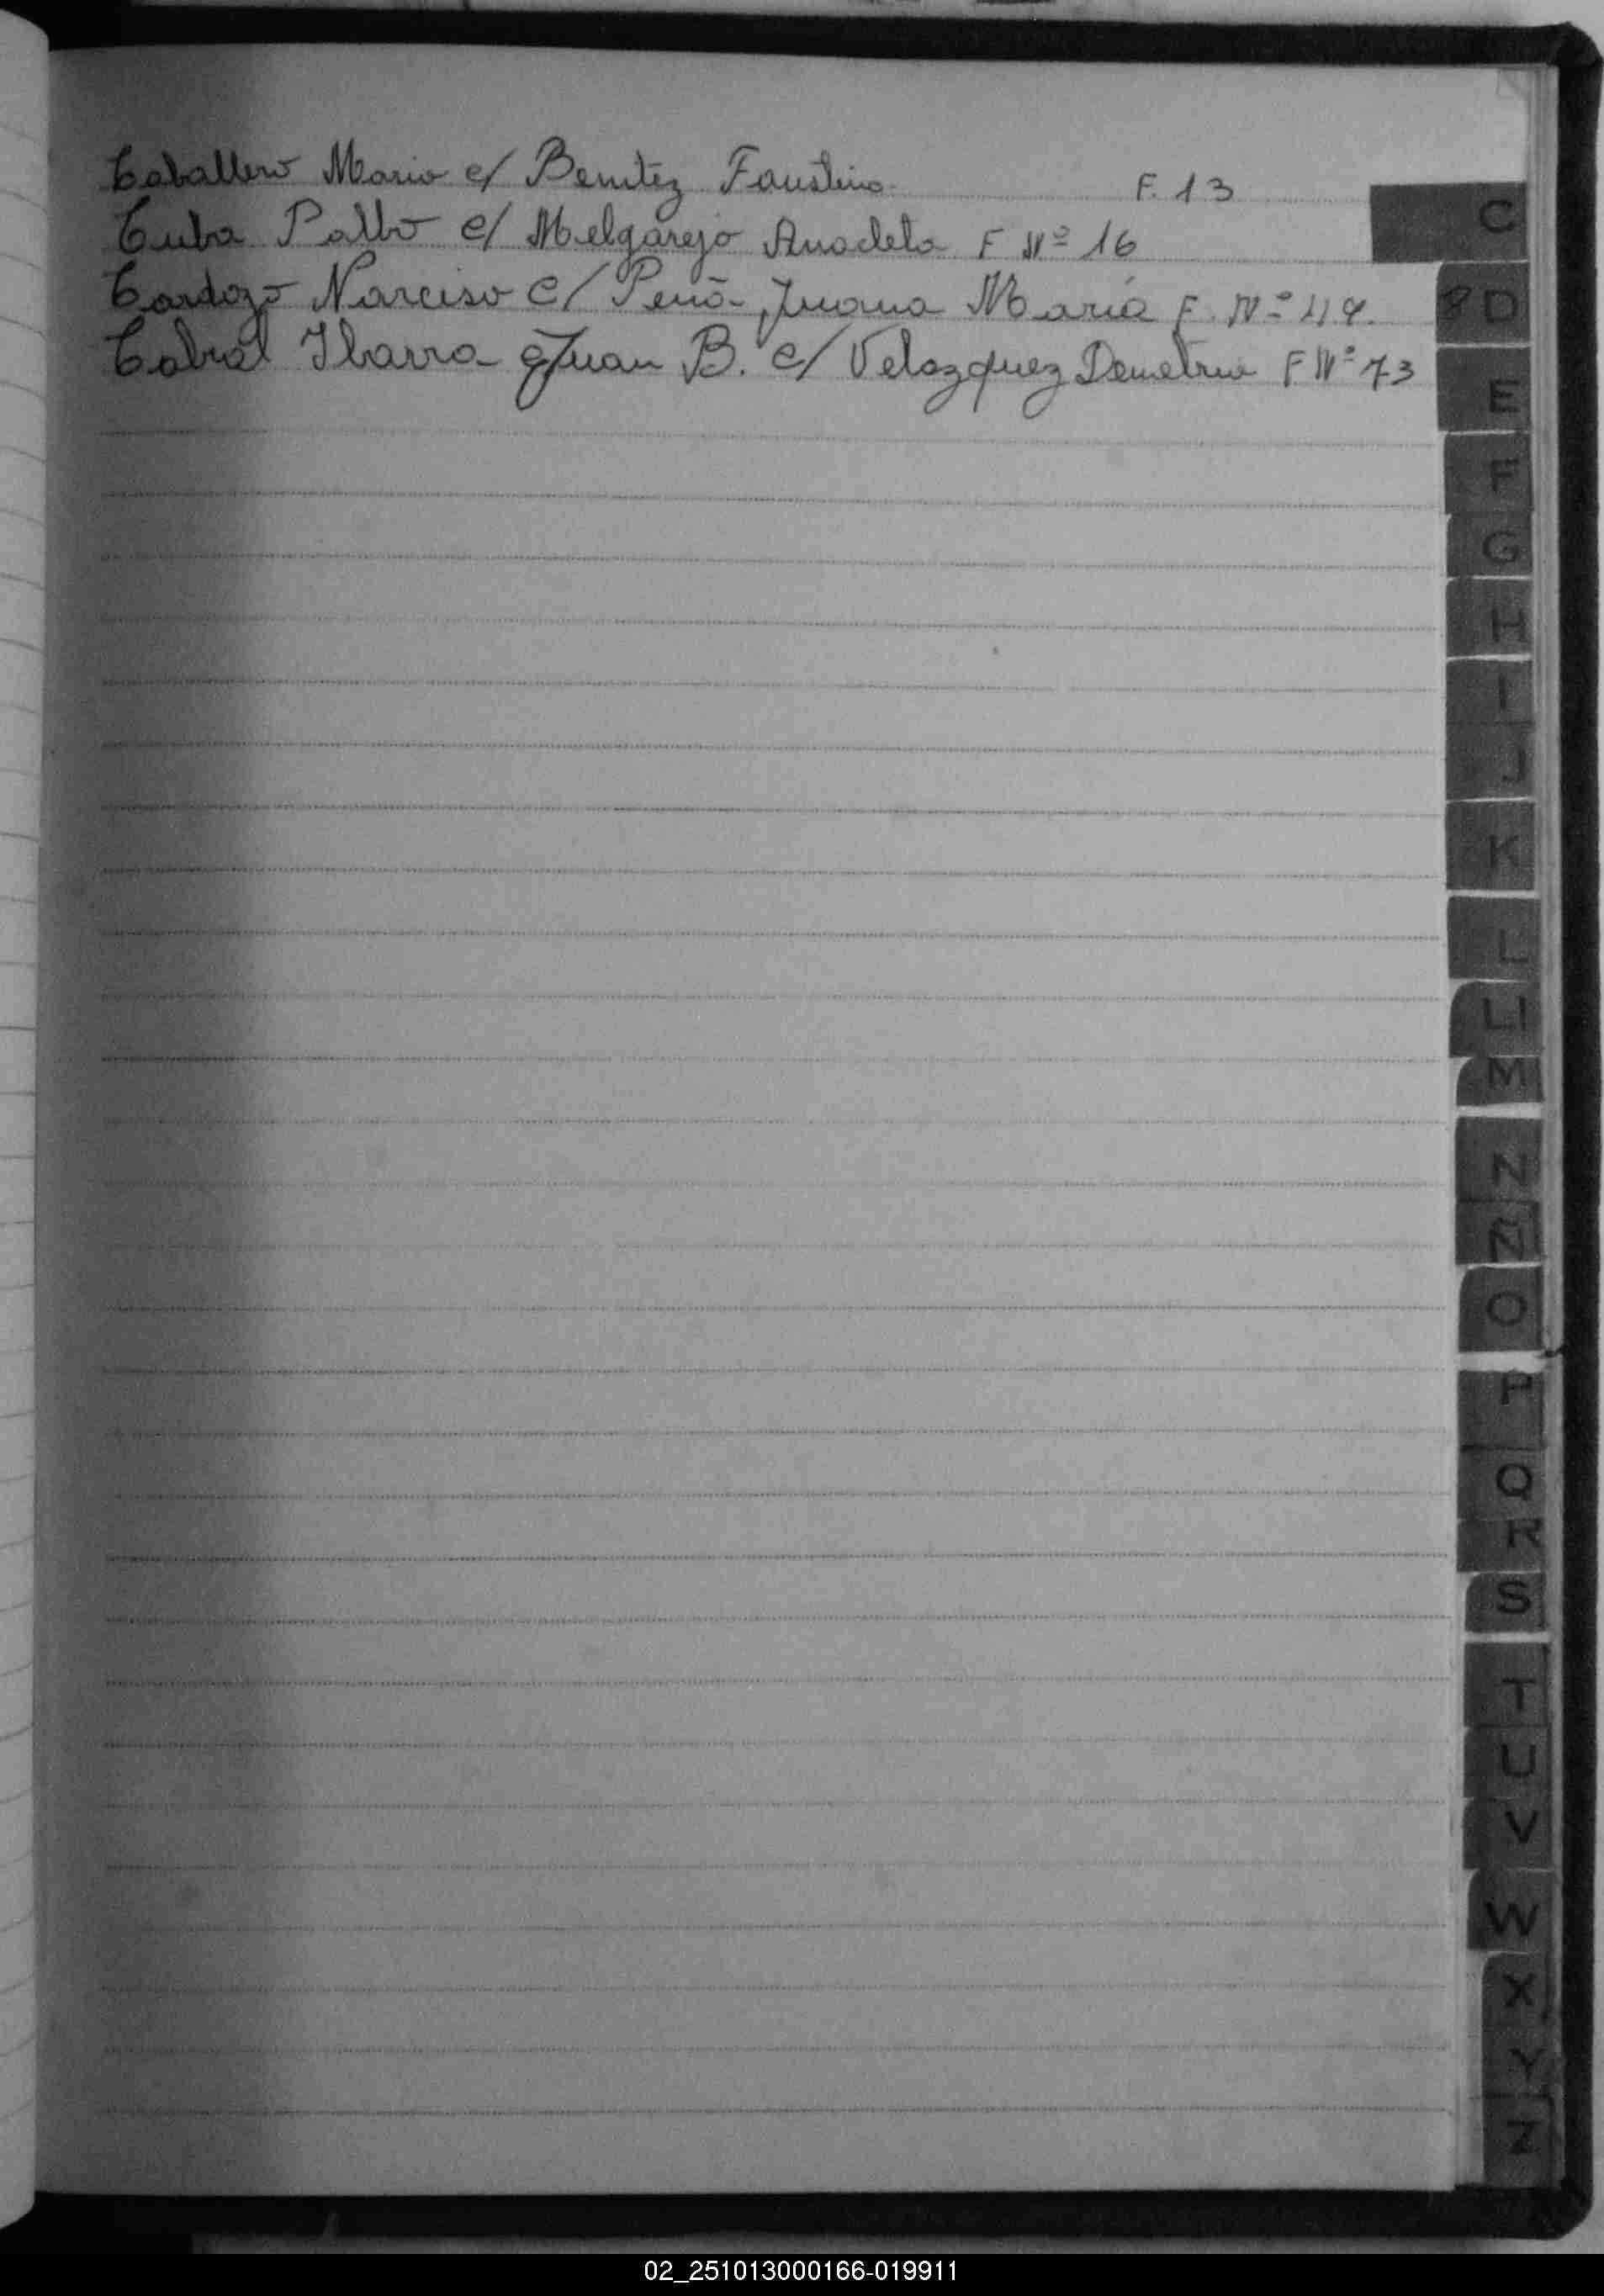 Caballero Mario c/ Benitez Faustina F. 13
Cuba Pablo c/ Melgarejo Anacleta F Nº 16
Cardozo Narciso c/ Peña Juana María F. Nº
Cabral Ibarra Juan B. c/ Velazquez Demetria F Nº 73
C
D
E
F
G
H
I
J
K
L
Ll
M
N
Ñ
O
P
Q
R
S
T
U
V
W
X
Y
Z
02_251013000166-019911